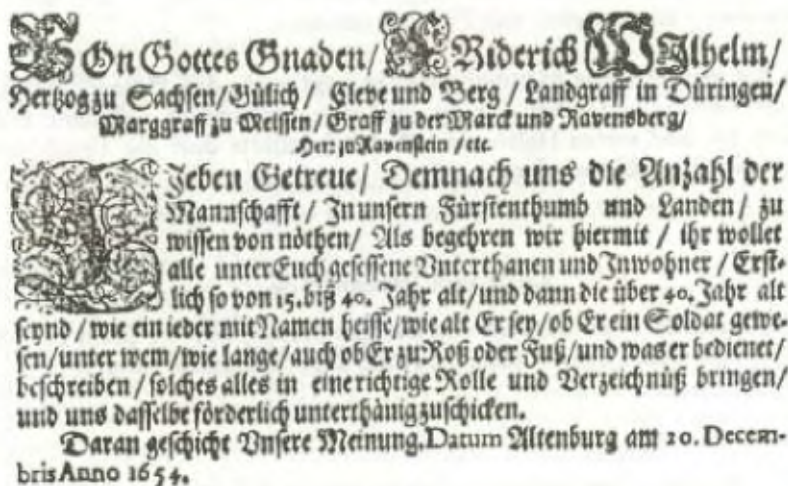 VOn Gottes Gnaden/ FRiderich WIlhelm/
Hertzog zu Sachsen/Gülich/ Cleve und Berg / Landgraff in Düringen/
Marggraff zu Meissen/Graff zu der Marck und Ravensberg/
Herr zu Ravenstein /etc.
LIeben Getreue/ Demnach uns die Anzahl der
Mannschafft / In unsern Fürstenthumb und Landen/ zu
wissen von nöthen/ Als begehren wir hiermit / ihr wollet
alle unter Euch gesessene Vnterthanen und Inwohner / Erst-
lich so von 15. biß 40. Jahr alt/und dann die über 40. Jahr alt
seynd / wie ein ieder mit Namen heisse/wie alt Er sey/ob Er ein Soldat gewe-
sen/unter wem/wie lange/auch ob Er zu Roß oder Fuß/und was er bedienet/
beschreiben / solches alles in eine richtige Rolle und Verzeichnüß bringen/
und uns dasselbe förderlich unterthänig zuschicken.
Daran geschicht Vnsere Meinung. Datum Altenburg am 20. Decem-
bris Anno 1654.